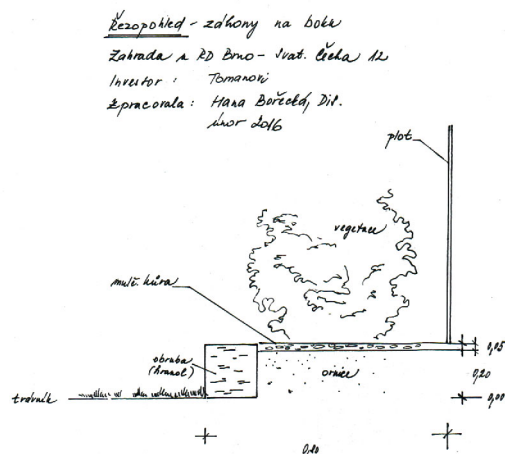 Řezopohled - záhony na boku
Zahrada u RD Brno - Svat. Čecha 12
Investor : Tomanovi
Zpracovala : Hana Bořecká, DiS.
únor 2016
plot
vegetace
mulč. kůra
obruba
(hranol)
ornice
trávník
0,05
0,20
0,00